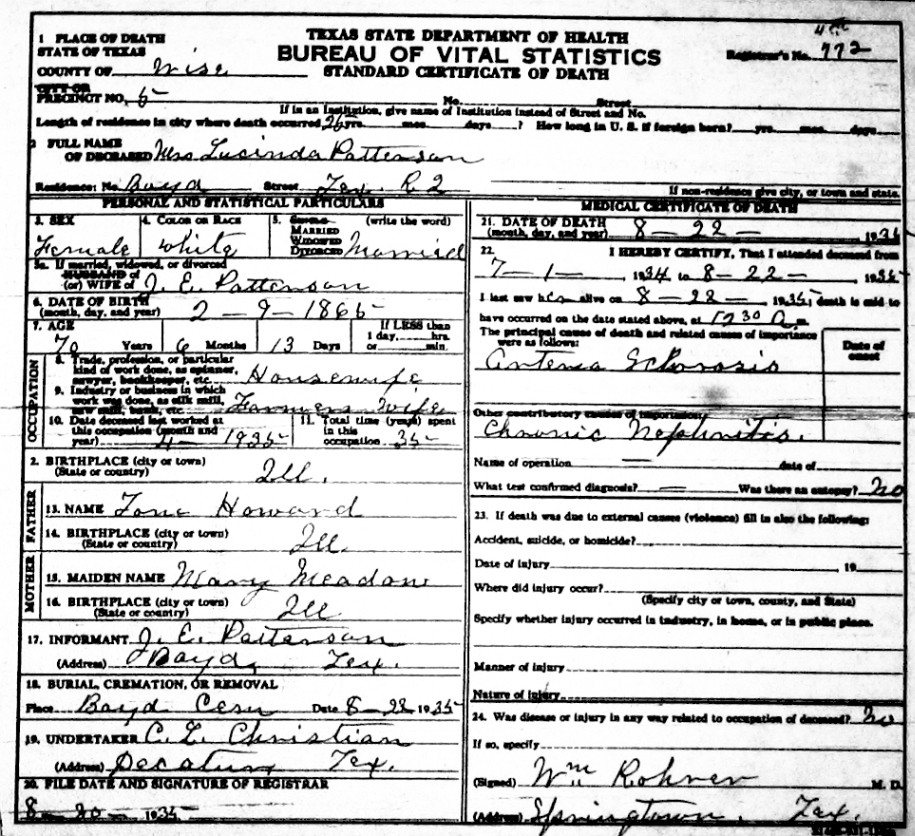 TEXAS STATE DEPARTMENT OF HEALTH
BUREAU OF VITAL STATISTICS
STANDARD CERTIFICATE OF DEATH
1 PLACE OF DEATH
STATE OF TEXAS
COUNTY OF Wise
CITY OR
PRECINCT NO. 5
Registrar's No. 772
No. Street
If in an Institution, give name of Institution instead of Street and No.
Length of residence in city where death occurred 26 yrs. mos. days ? How long in U. S. if foreign born? yrs. mos. days
2 FULL NAME
OF DECEASED Mrs. Lucinda Patterson
Residence: No. Boyd Street Tex. R2
If non-residence give city, or town and state.
PERSONAL AND STATISTICAL PARTICULARS
3. SEX
Female
4. COLOR OR RACE
White
5. (write the word)
MARRIED
WIDOWED
DIVORCED Married
5a. If married, widowed, or divorced
HUSBAND of
(or) WIFE of J. E. Patterson
6. DATE OF BIRTH
(month, day, and year) 2 - 9 - 1865
7. AGE
70 Years 6 Months 13 Days
If LESS than
1 day, hrs.
or min.
OCCUPATION
8. Trade, profession, or particular
kind of work done, as spinner,
sawyer, bookkeeper, etc. Housewife
9. Industry or business in which
work was done, as silk mill,
saw mill, bank, etc. Farmers Wife
10. Date deceased last worked at
this occupation (month and
year) 4 - 1935
11. Total time (years) spent
in this
occupation 35
2. BIRTHPLACE (city or town)
(State or country) Ill.
FATHER
13. NAME Howard
14. BIRTHPLACE (city or town)
(State or country) Ill.
MOTHER
15. MAIDEN NAME Mary Meadow
16. BIRTHPLACE (city or town)
(State or country) Ill
17. INFORMANT J. E. Patterson
(Address) Boyd, Tex.
18. BURIAL, CREMATION, OR REMOVAL
Place Boyd Cem Date 8 - 1935
19. UNDERTAKER C. L. Christian
(Address) Decatur Tex.
20. FILE DATE AND SIGNATURE OF REGISTRAR
8 - 30 - 1935
MEDICAL CERTIFICATE OF DEATH
21. DATE OF DEATH
(month, day, and year) 8 - 22 - 19
22. I HEREBY CERTIFY, That I attended deceased from
7 - 1 - 1934 to 8 - 22 - 1935
I last saw her alive on 8 - 22 - 1935, death is said to
have occurred on the date stated above, at 1230 a m.
The principal cause of death and related causes of importance
were as follows:
Date of
onset
Arteria Sclorosis
Other contributory causes of importance:
Chronic Nephritis.
Name of operation — date of
What test confirmed diagnosis? — Was there an autopsy? no
23. If death was due to external causes (violence) fill in also the following:
Accident, suicide, or homicide?
Date of injury 19
Where did injury occur?
(Specify city or town, county, and State)
Specify whether injury occurred in industry, in home, or in public place.
Manner of injury
Nature of injury
24. Was disease or injury in any way related to occupation of deceased? no
If so, specify
(Signed) Wm. Rohrer M. D.
(Address) Springtown, Tex.